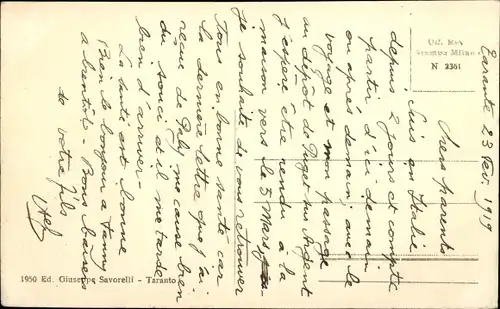 Tarante 23 Fev. 1919
Chers parents
Suis en Italie
depuis 2 jours et compte
partir d'ici demain
ou après demain, avec le
voyage et mon passage
au dépôt de Puget sur Argent
j'espère etre rendu à la
maison vers le 5 Mars
Je souhaite de vous retrouver
Tous en bonne santé car
la dernière lettre que j'ai
reçue de Paly me cause bien
du souci et il me tarde
bien d'arriver.
La santé est bonne
Bien le bonjour a Fanny
a bientôt - Bons baisers
de votre fils
Uff. Rev.
Stampa Milano
N 2361
1950 Ed. Giuseppe Savorelli - Taranto